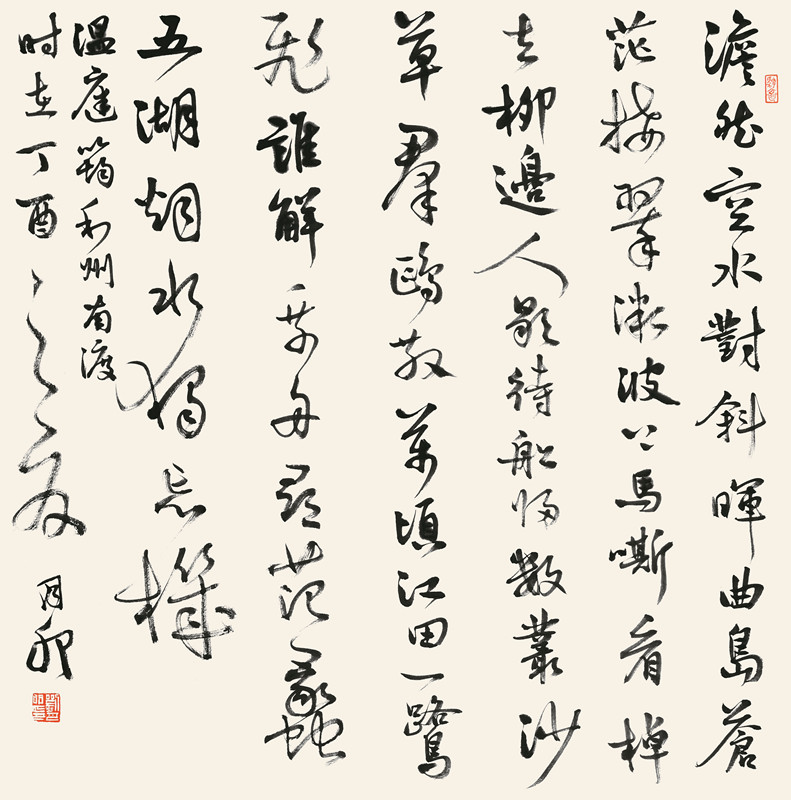 澹然空水對斜暉曲島蒼
茫接翠微波上馬嘶看棹
去柳邊人歇待船歸數叢沙
草羣鷗散萬頃江田一鷺
飛誰解乘舟尋范蠡
五湖烟水獨忘機
温庭筠利州南渡
时在丁酉之夏月卯